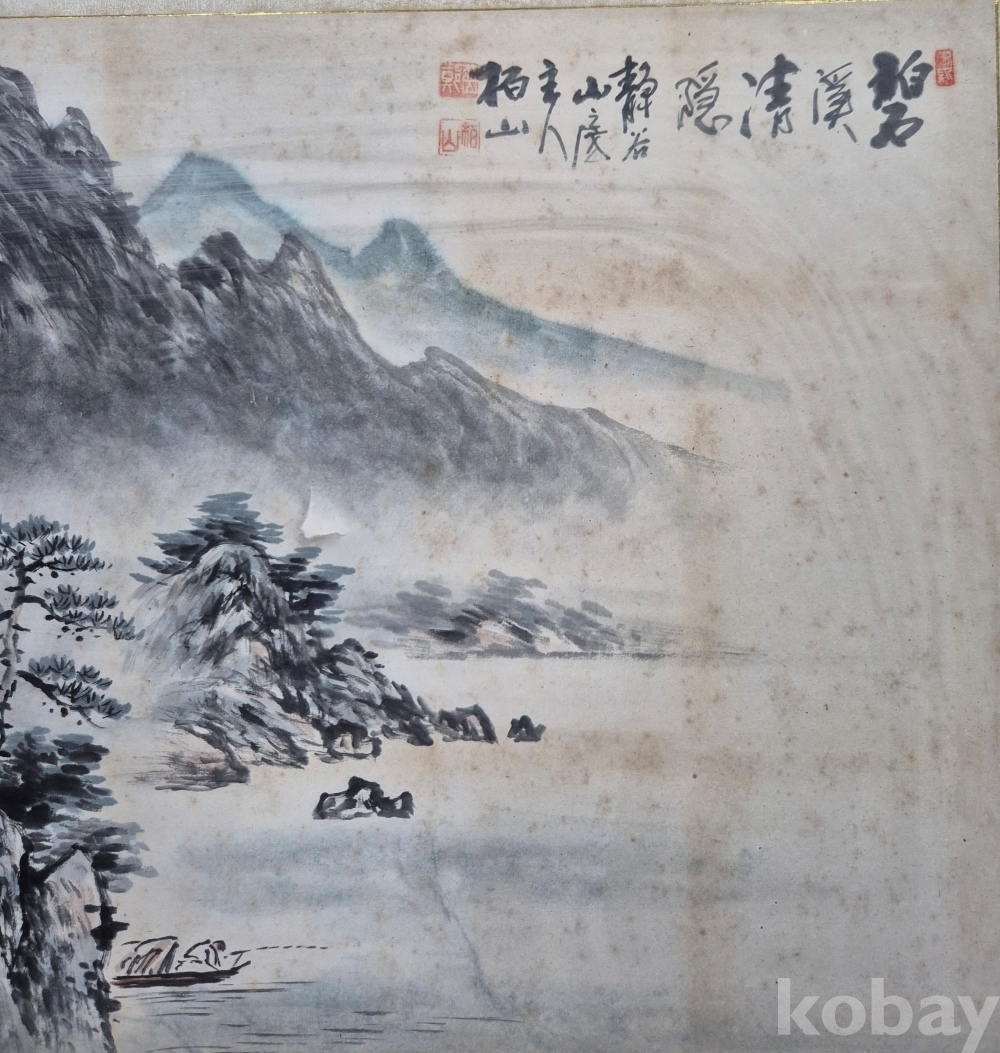 碧溪清隱
靜谷
山房
主人
柏山
kobay